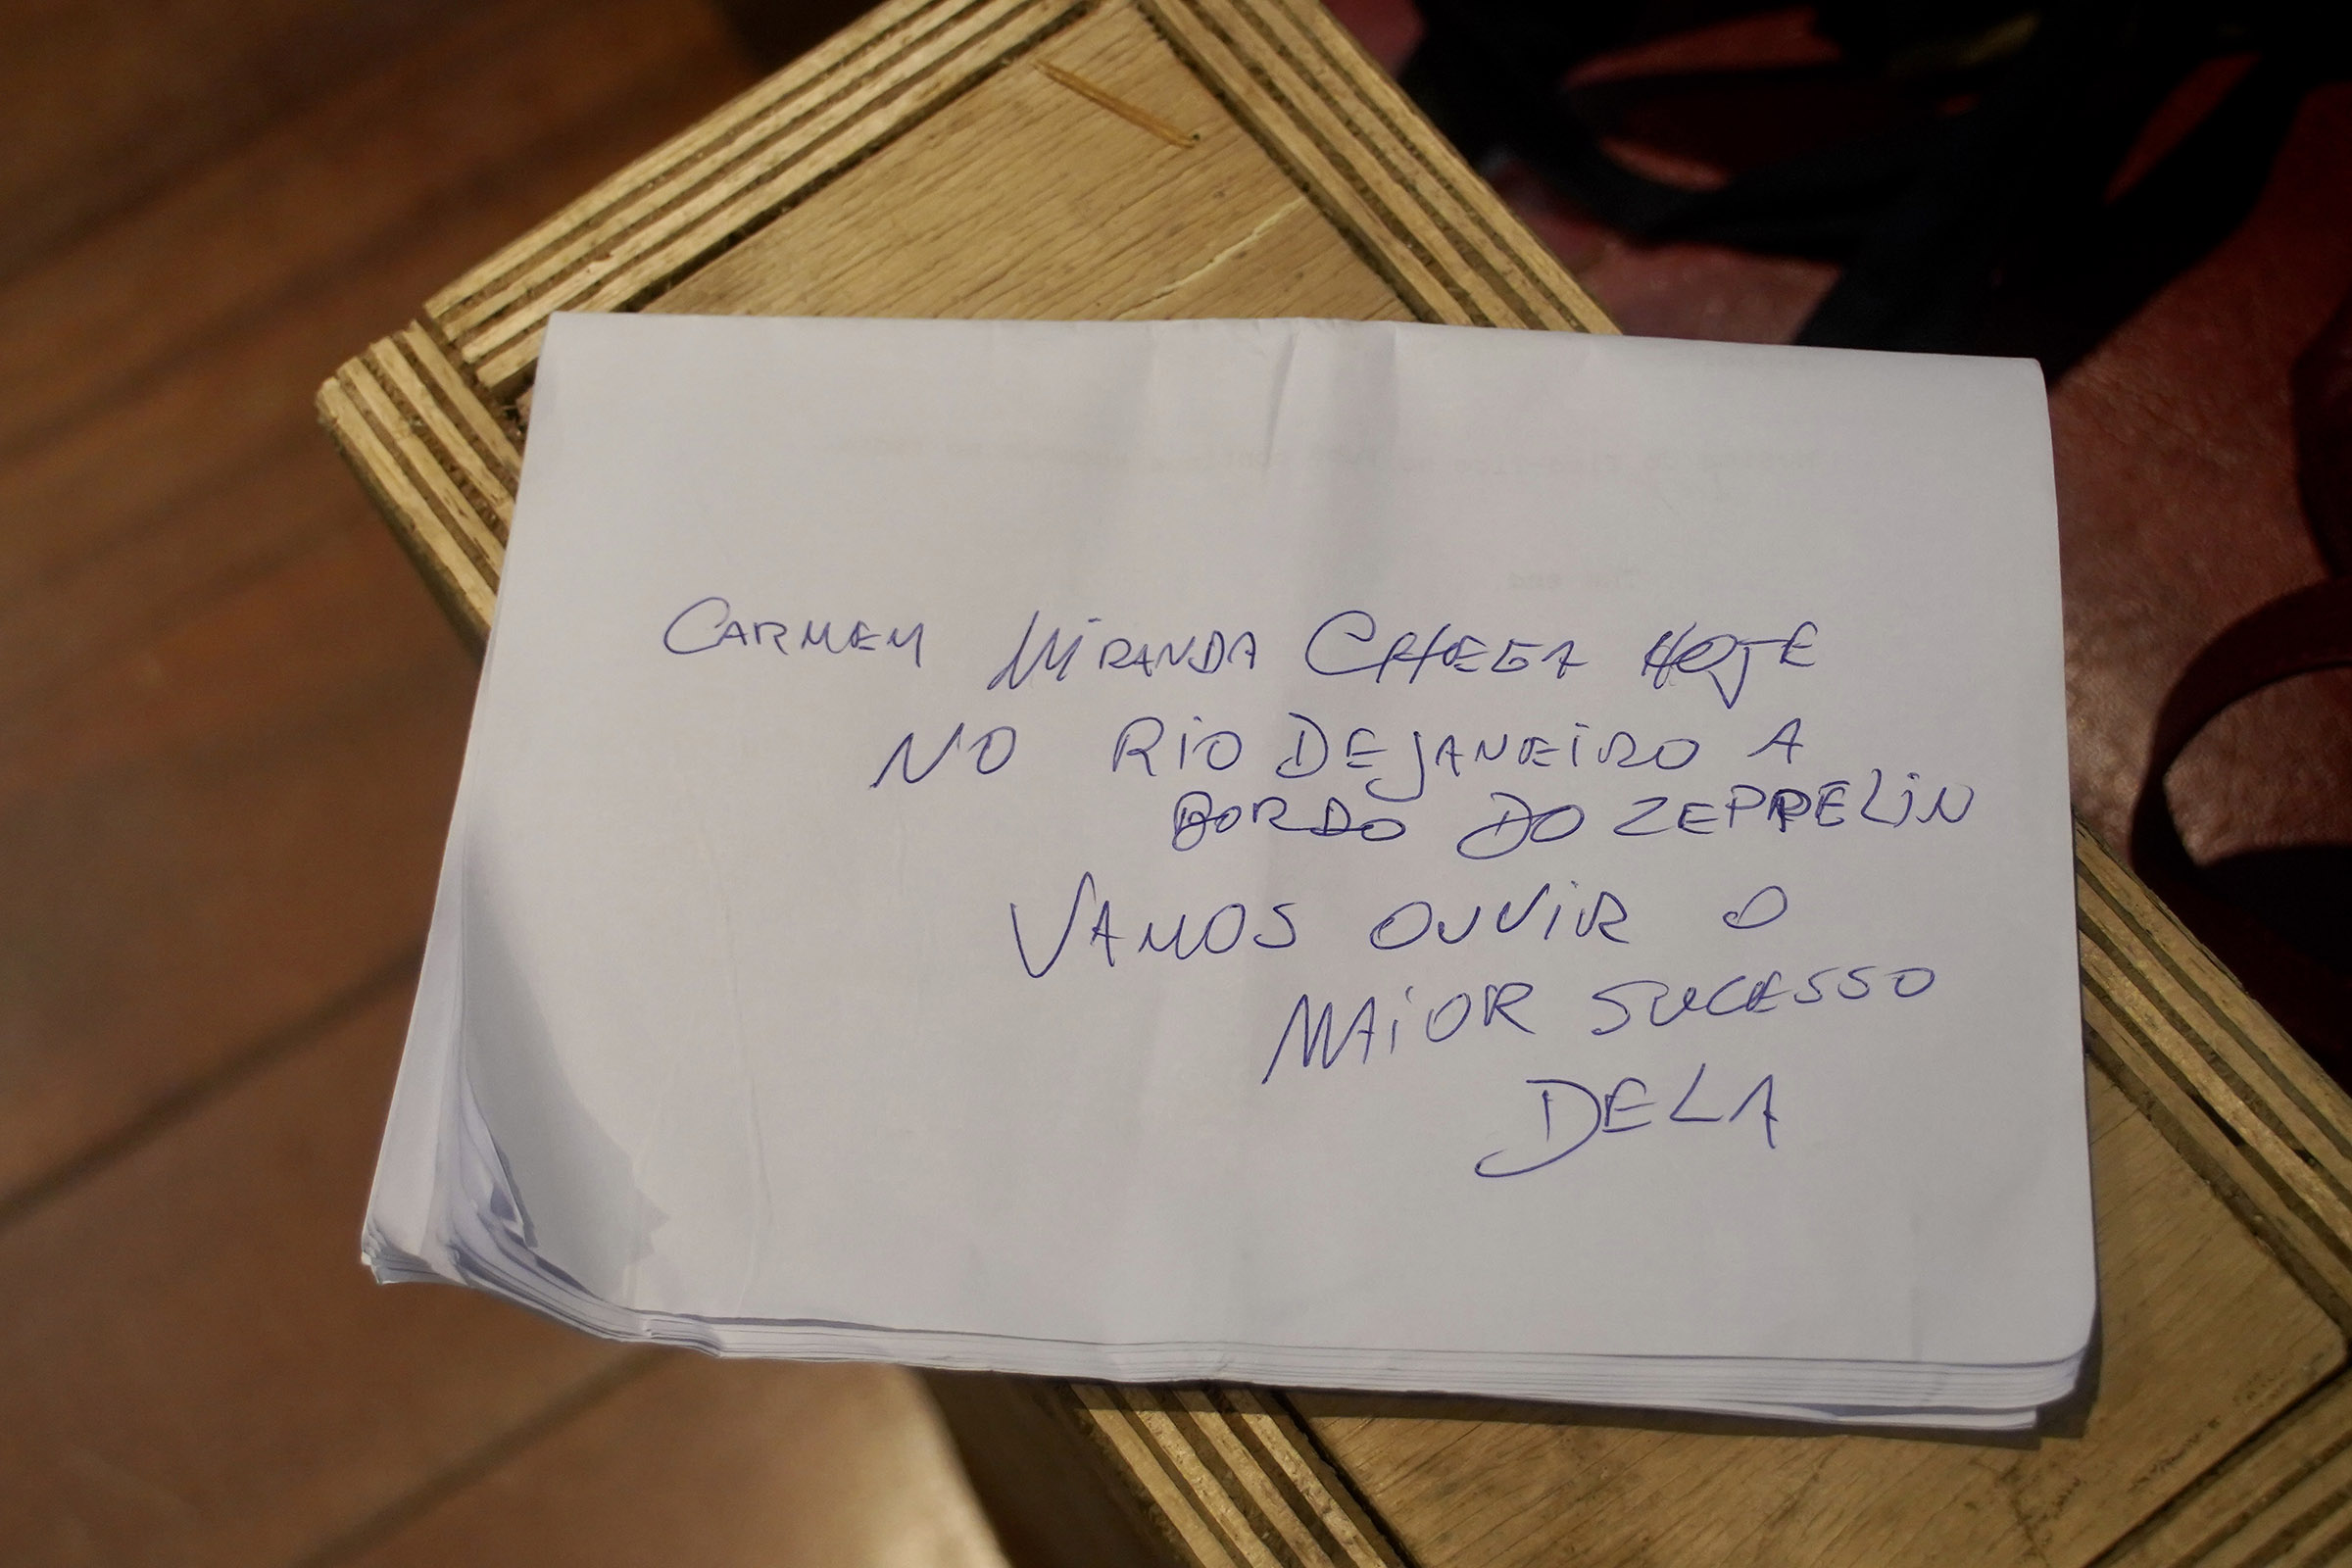 CARMEM MIRANDA CHEGA HOJE
NO RIO DE JANEIRO A
BORDO DO ZEPPELIN
VAMOS OUVIR O
MAIOR SUCESSO
DELA
The end